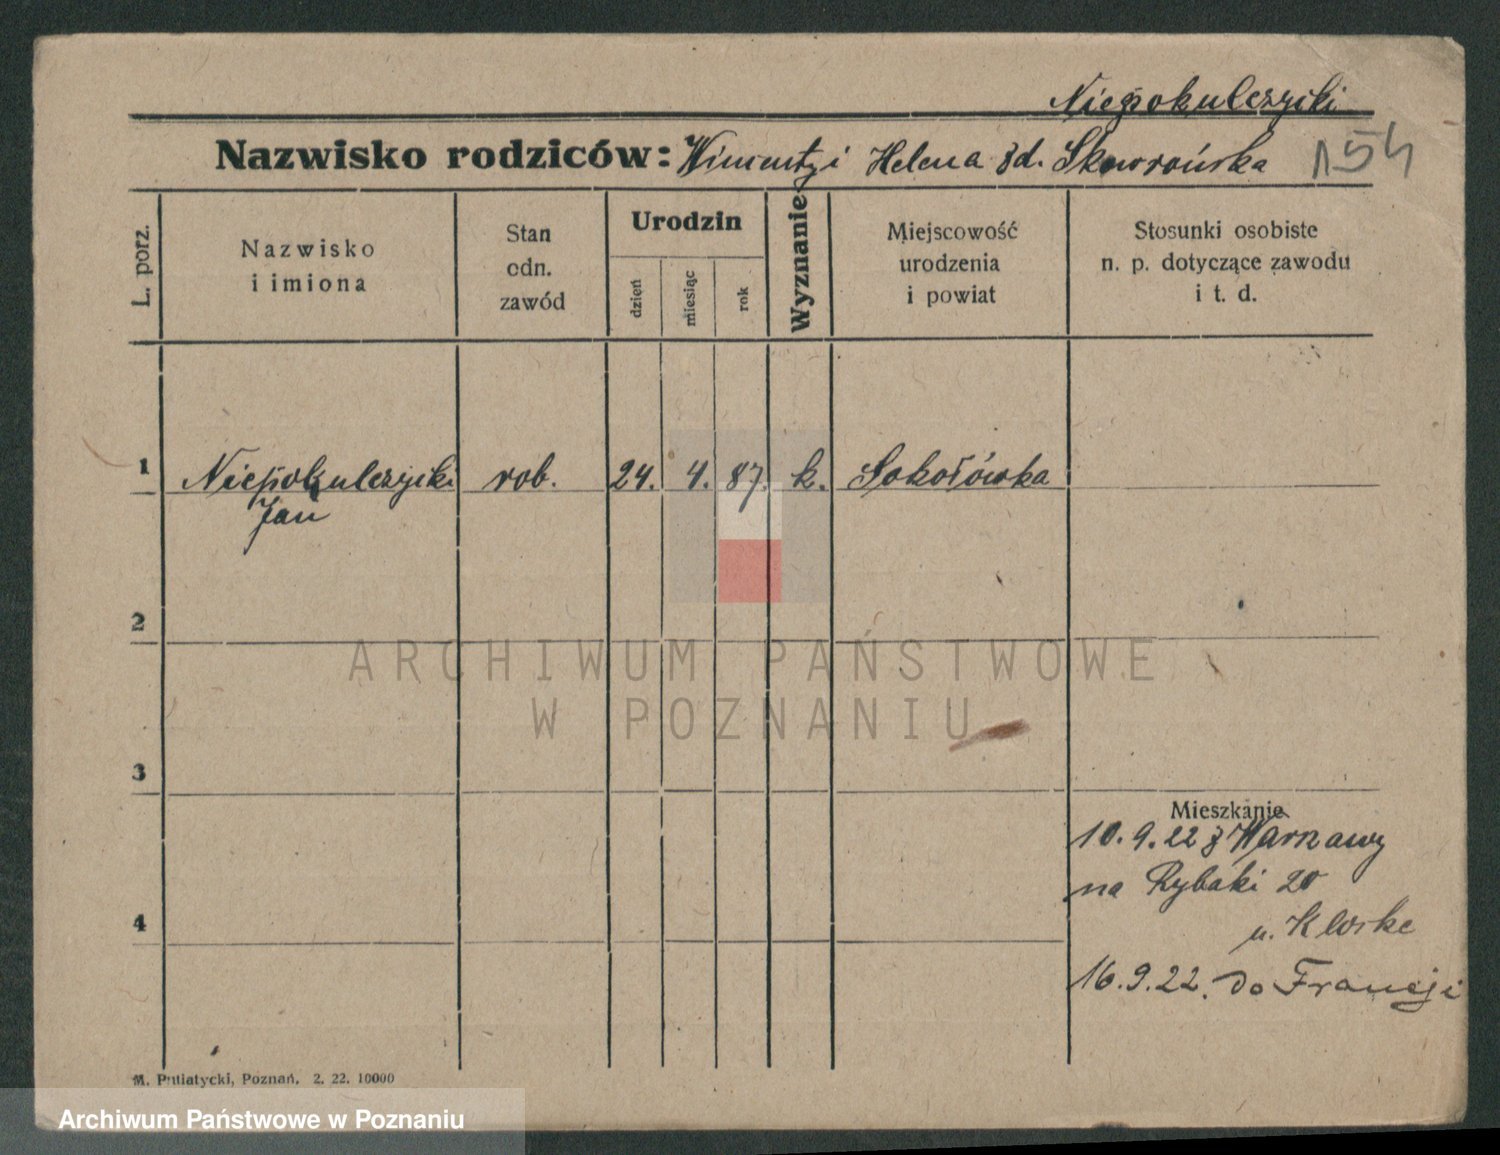 Niepokulczycki
Nazwisko rodziców: Wincenty i Helena zd. Skowrońska 154
L. porz.
Nazwisko
i imiona
Stan
odn.
zawód
Urodzin
dzień
miesiąc
rok
Wyznanie
Miejscowość
urodzenia
i powiat
Stosunki osobiste
n. p. dotyczące zawodu
i t. d.
1 Niepokulczycki rob. 24. 4. 87. k. Sokołówka
Jan
2
3
4
Mieszkanie
10.9.22 z Warszawy
na Rybaki 20
u. Kloske
16.9.22. do Francji
M. Putiatycki, Poznań, 2. 22. 10000
ARCHIWUM PAŃSTWOWE
W POZNANIU
Archiwum Państwowe w Poznaniu